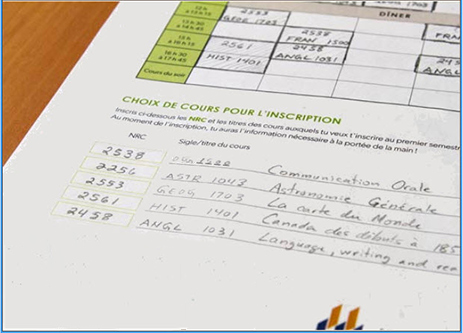 1703
12 h
à 13 h 15
2553
DÎNER
13 h 30
à 14 h 45
GEOG 1703
2538
15 h
à 16 h 15
FRAN 1500
FRAN
16 h 30
à 17 h 45
2561
2458
HIST 1401
ANGL 1031
Cours du soir
CHOIX DE COURS POUR L'INSCRIPTION
Inscris ci-dessous les NRC et les titres des cours auxquels tu veux t'inscrire au premier semestr
Au moment de l'inscription, tu auras l'information nécessaire à la portée de la main !
NRC
Sigle/titre du cours
2538 Communication Orale
2256 ASTR 1043 Astronomie Générale
2553 GEOG 1703 La carte du Monde
2561 HIST 1401 Canada des débuts à 185
2458 ANGL 1031 Language, writing and rea